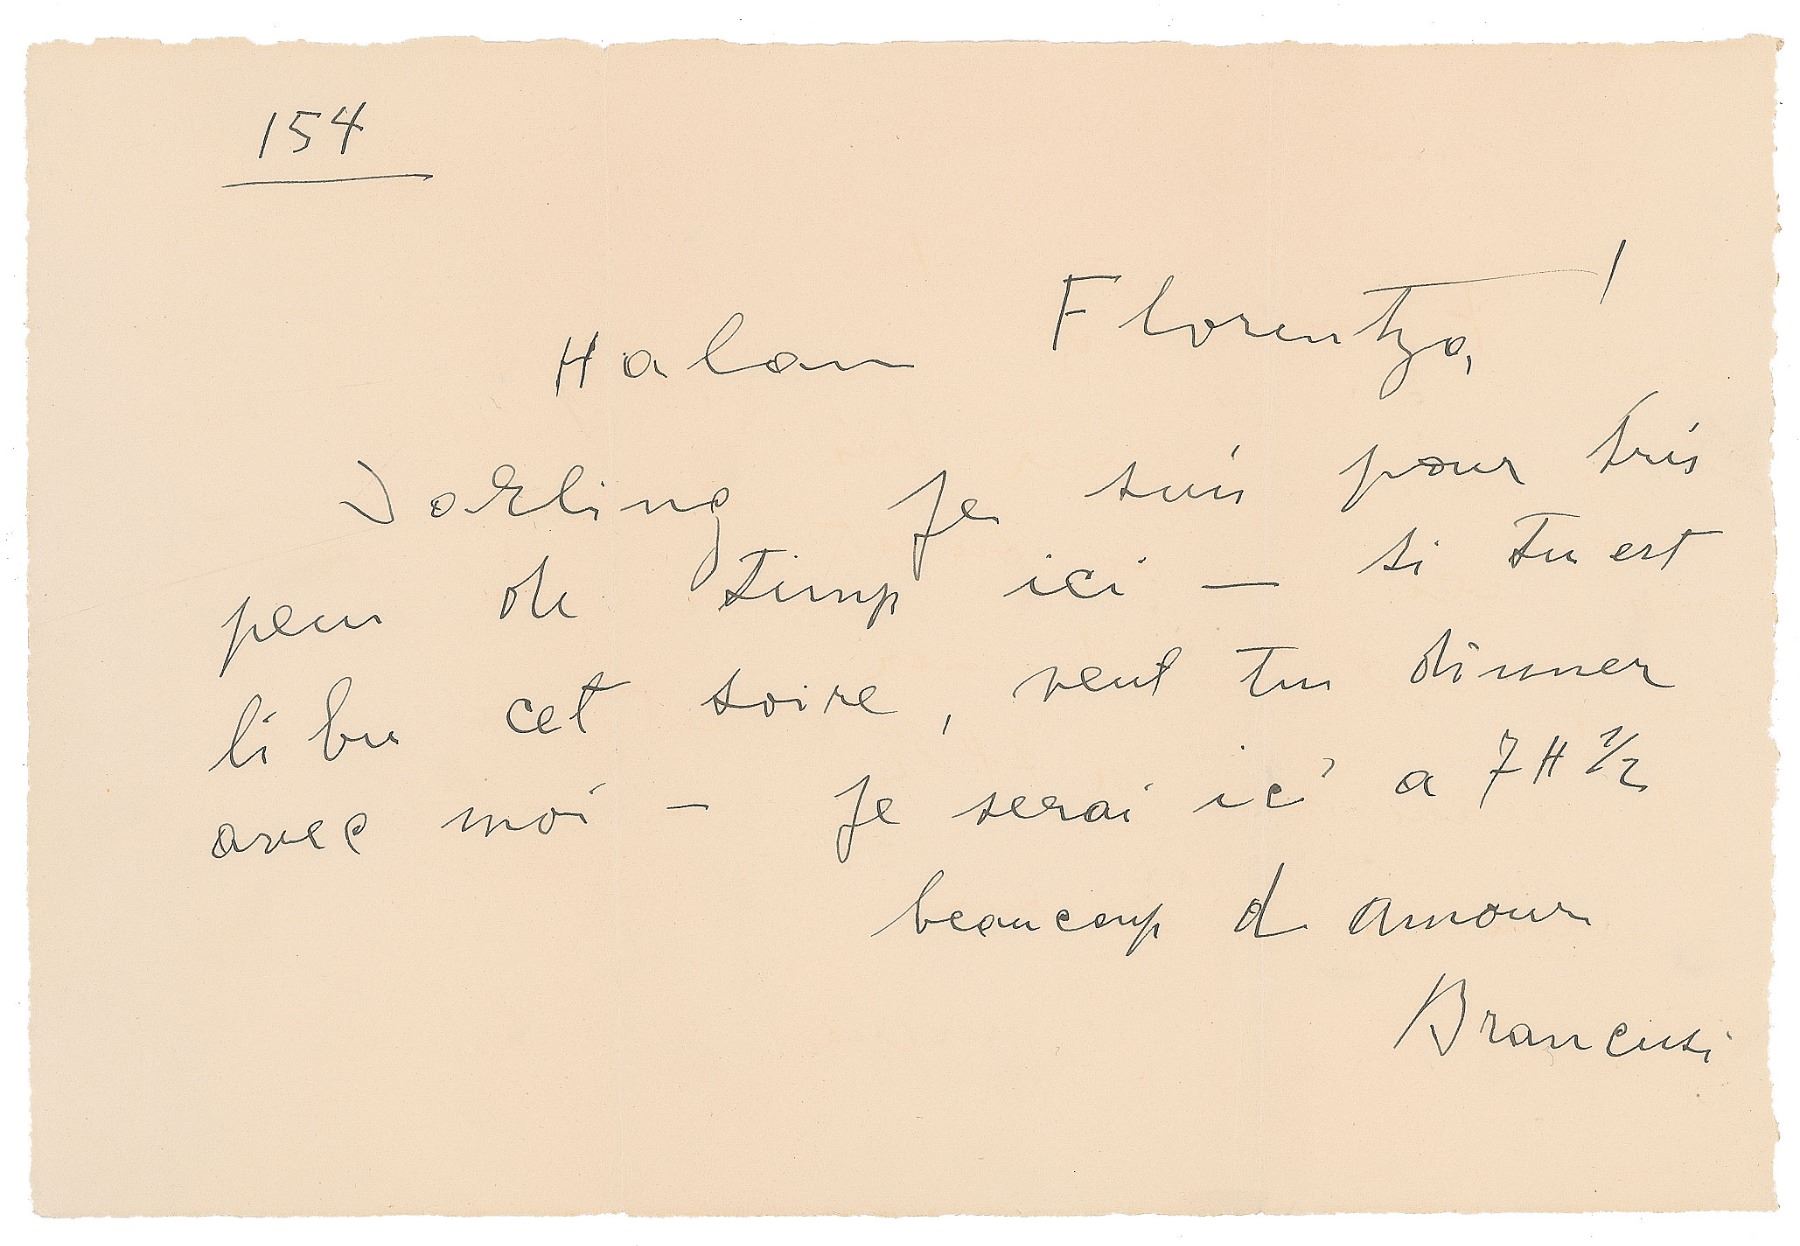 154
Halau Florentza !
Darling Je suis pour tris
peu de timp ici — si tu est
libre cet soire, veut tu dinner
avec moi — Je serai ici a 7 H 1/2
beaucoup d amour
Brancusi